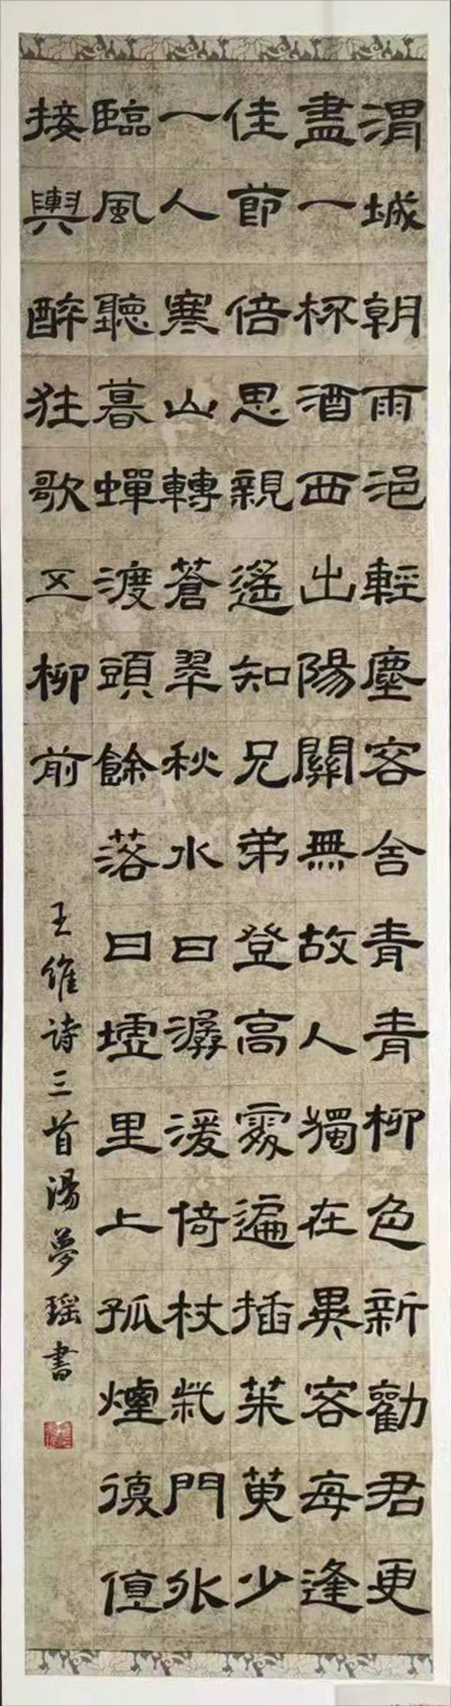 渭城朝雨浥輕塵客舍青青柳色新勸君更
盡一杯酒西出陽關無故人獨在異客每逢
佳節倍思親遙知兄弟登高處遍插茱萸少
一人寒山轉蒼翠秋水日潺湲倚杖柴門外
臨風聽暮蟬渡頭餘落日墟里上孤煙復值
接輿醉狂歌五柳前
王維诗三首湯夢瑶書